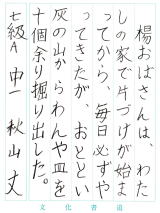 楊おばさんは、わた
しの家で片づけが始ま
ってから、毎日必ずや
ってきたが、おととい
灰の山からわんや皿を
十個余り掘り出した。
七級A 中一 秋山丈
文化書道